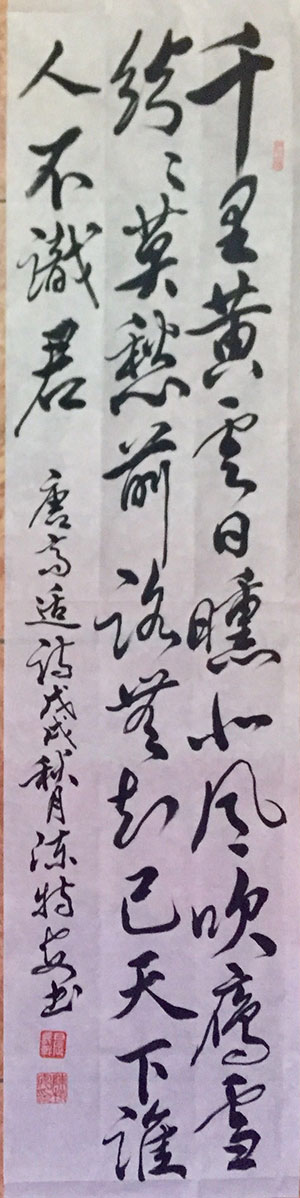 千里黄雲日曛北風吹雁雪
紛々莫愁前路無知己天下誰
人不識君
唐高适詩戊戌秋月陳特安書